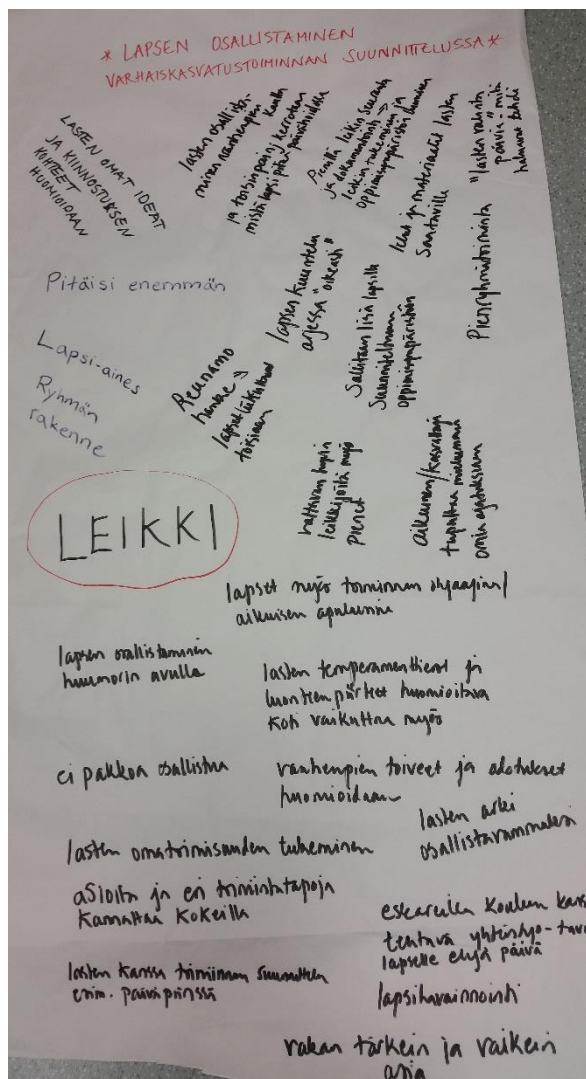 * LAPSEN OSALLISTAMINEN
VARHAISKASVATUSTOIMINNAN SUUNNITTELUSSA *
LASTEN OMAT IDEAT
JA KIINNOSTUKSEN
KOHTEET
HUOMIOIDAAN
lasten osallistu-
minen vanhempien kautta
ja toisinpäin; kerrotaan
mistä lapsi pitää päiväkodissa
leikin tukeminen ja
oppimisympäristö
lelut ja materiaalit lasten
saataville
"lasten valinta
päiviä" mitä
haluavat tehdä
Pienryhmätoiminta
Pitäisi enemmän
Lapsi-aines
Ryhmän
rakenne
Reunamo
hanke →
lapset tutkailevat
toisiaan
lapsen kuuntelu
arjessa "oikeasti"
Sallitaan lisää lapsille
suunniteltuun
oppimisympäristöön
leikkijöitä myös
pienet
aikuinen/kasvattaja
omia ajatuksiaan
LEIKKI
lapset myös toiminnan ohjaajina/
aikuisen apulaisina
lapsen osallistaminen
huumorin avulla
lasten temperamentti erot ja
luonteenpiirteet huomioitava
Koti vaikuttaa myös
ei pakkoa osallistua
vanhempien toiveet ja odotukset
huomioidaan
lasten arki
osallistavammaksi
lasten omatoimisuuden tukeminen
asioita ja eri toimintatapoja
kannattaa kokeilla
eskareilla koulun kans
tehtävä yhteistyö-
lapselle ehjä päivä
lasten kanssa toiminnan suunnittelu
esim. päiväpiirissä
lapsihavainnointi
tärkein ja vaikein
asia